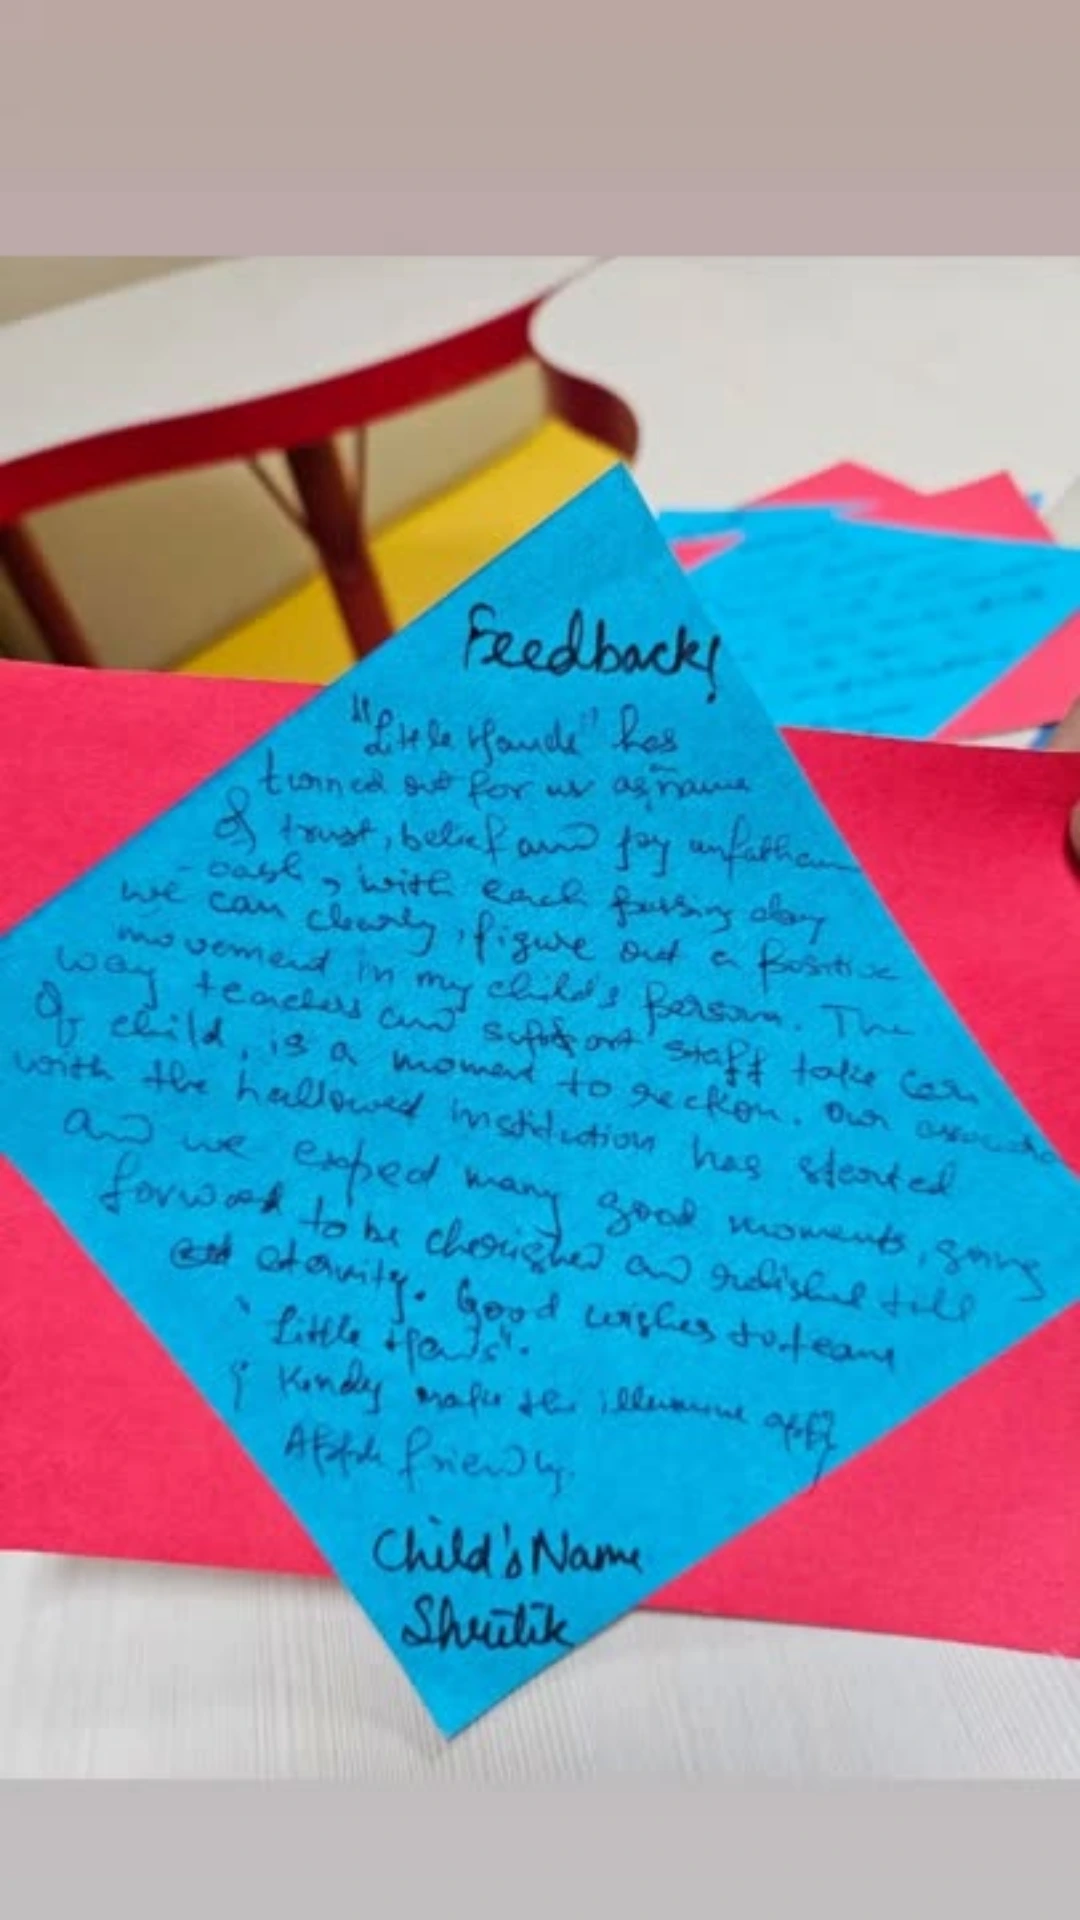 Feedback!
"Little Hands" has
turned out for us as a name
of trust, belief and joy unfathom
with each passing day
we can clearly, figure out a positive
movement in my child's person. The
way teachers and support staff take care
of child, is a moment to reckon. Our
with the hallowed institution has started
and we expect many good moments, going
forward to be cherished and relished till
eternity. Good wishes to team
"Little Hands".
Kindly make the illumine app
Apple friendly.
Child's Name
Shrutik